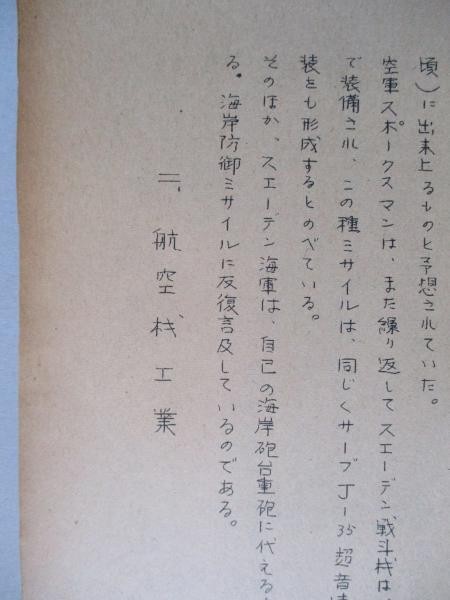 頃)に出来上るものと予想されていた。
空軍スポークスマンは、また繰り返してスエーデン戦斗機は、
で装備され、この種ミサイルは、同じくサーブJ-35超音速
装をも形成するとのべている。
そのほか、スエーデン海軍は、自己の海岸砲台重砲に代える
る。海岸防御ミサイルに反復言及しているのである。
二、航空機工業